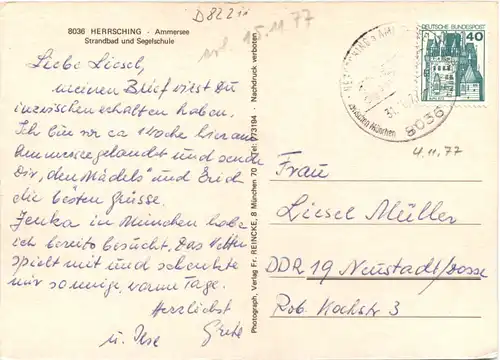 D822ii
15.11.77
8036 HERRSCHING - Ammersee
Strandbad und Segelschule
Liebe Liesel,
meinen Brief wirst Du
inzwischen erhalten haben.
Ich bin vor ca 1 Woche hier am
Ammersee gelandet und sende
Dir, den Mädels" und Erich
die besten Grüsse.
Jenka in München habe
ich bereits besucht. Das Wetter
spielt mit und schenkte
mir sonnige, warme Tage.
Herzlichst
u. Ilse Grete
Photograph, Verlag Fr. REINCKE, 8 München 70 Tel: 773194 · Nachdruck verboten
DEUTSCHE BUNDESPOST
40
8036
4.11.77
Frau
Liesel Müller
DDR 19 Neustadt/Dosse
Rob. Kochstr 3